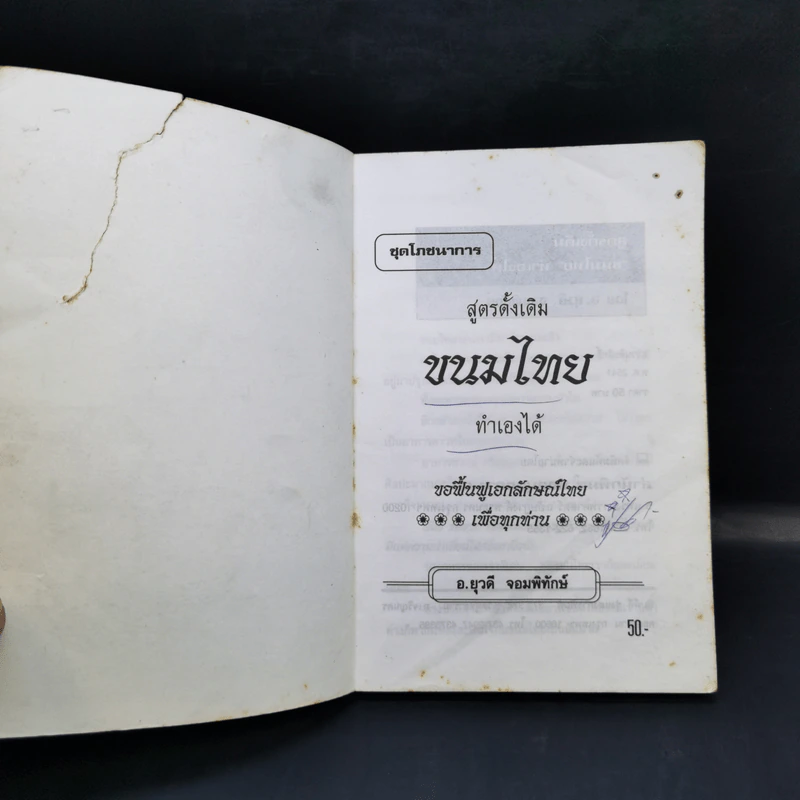 ชุดโภชนาการ
สูตรดั้งเดิม
ขนมไทย
ทำเองได้
ขอฟื้นฟูเอกลักษณ์ไทย
เพื่อทุกท่าน
อ.ยุวดี จอมพิทักษ์
50.-